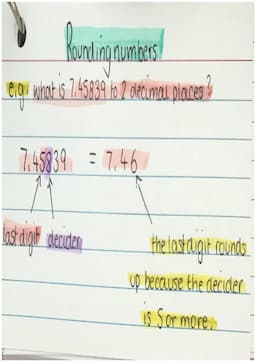 Rounding numbers
e.g. what is 7.45839 to 2 decimal places?
7.45839 = 7.46
last digit decider
the last digit rounds
up because the decider
is 5 or more.